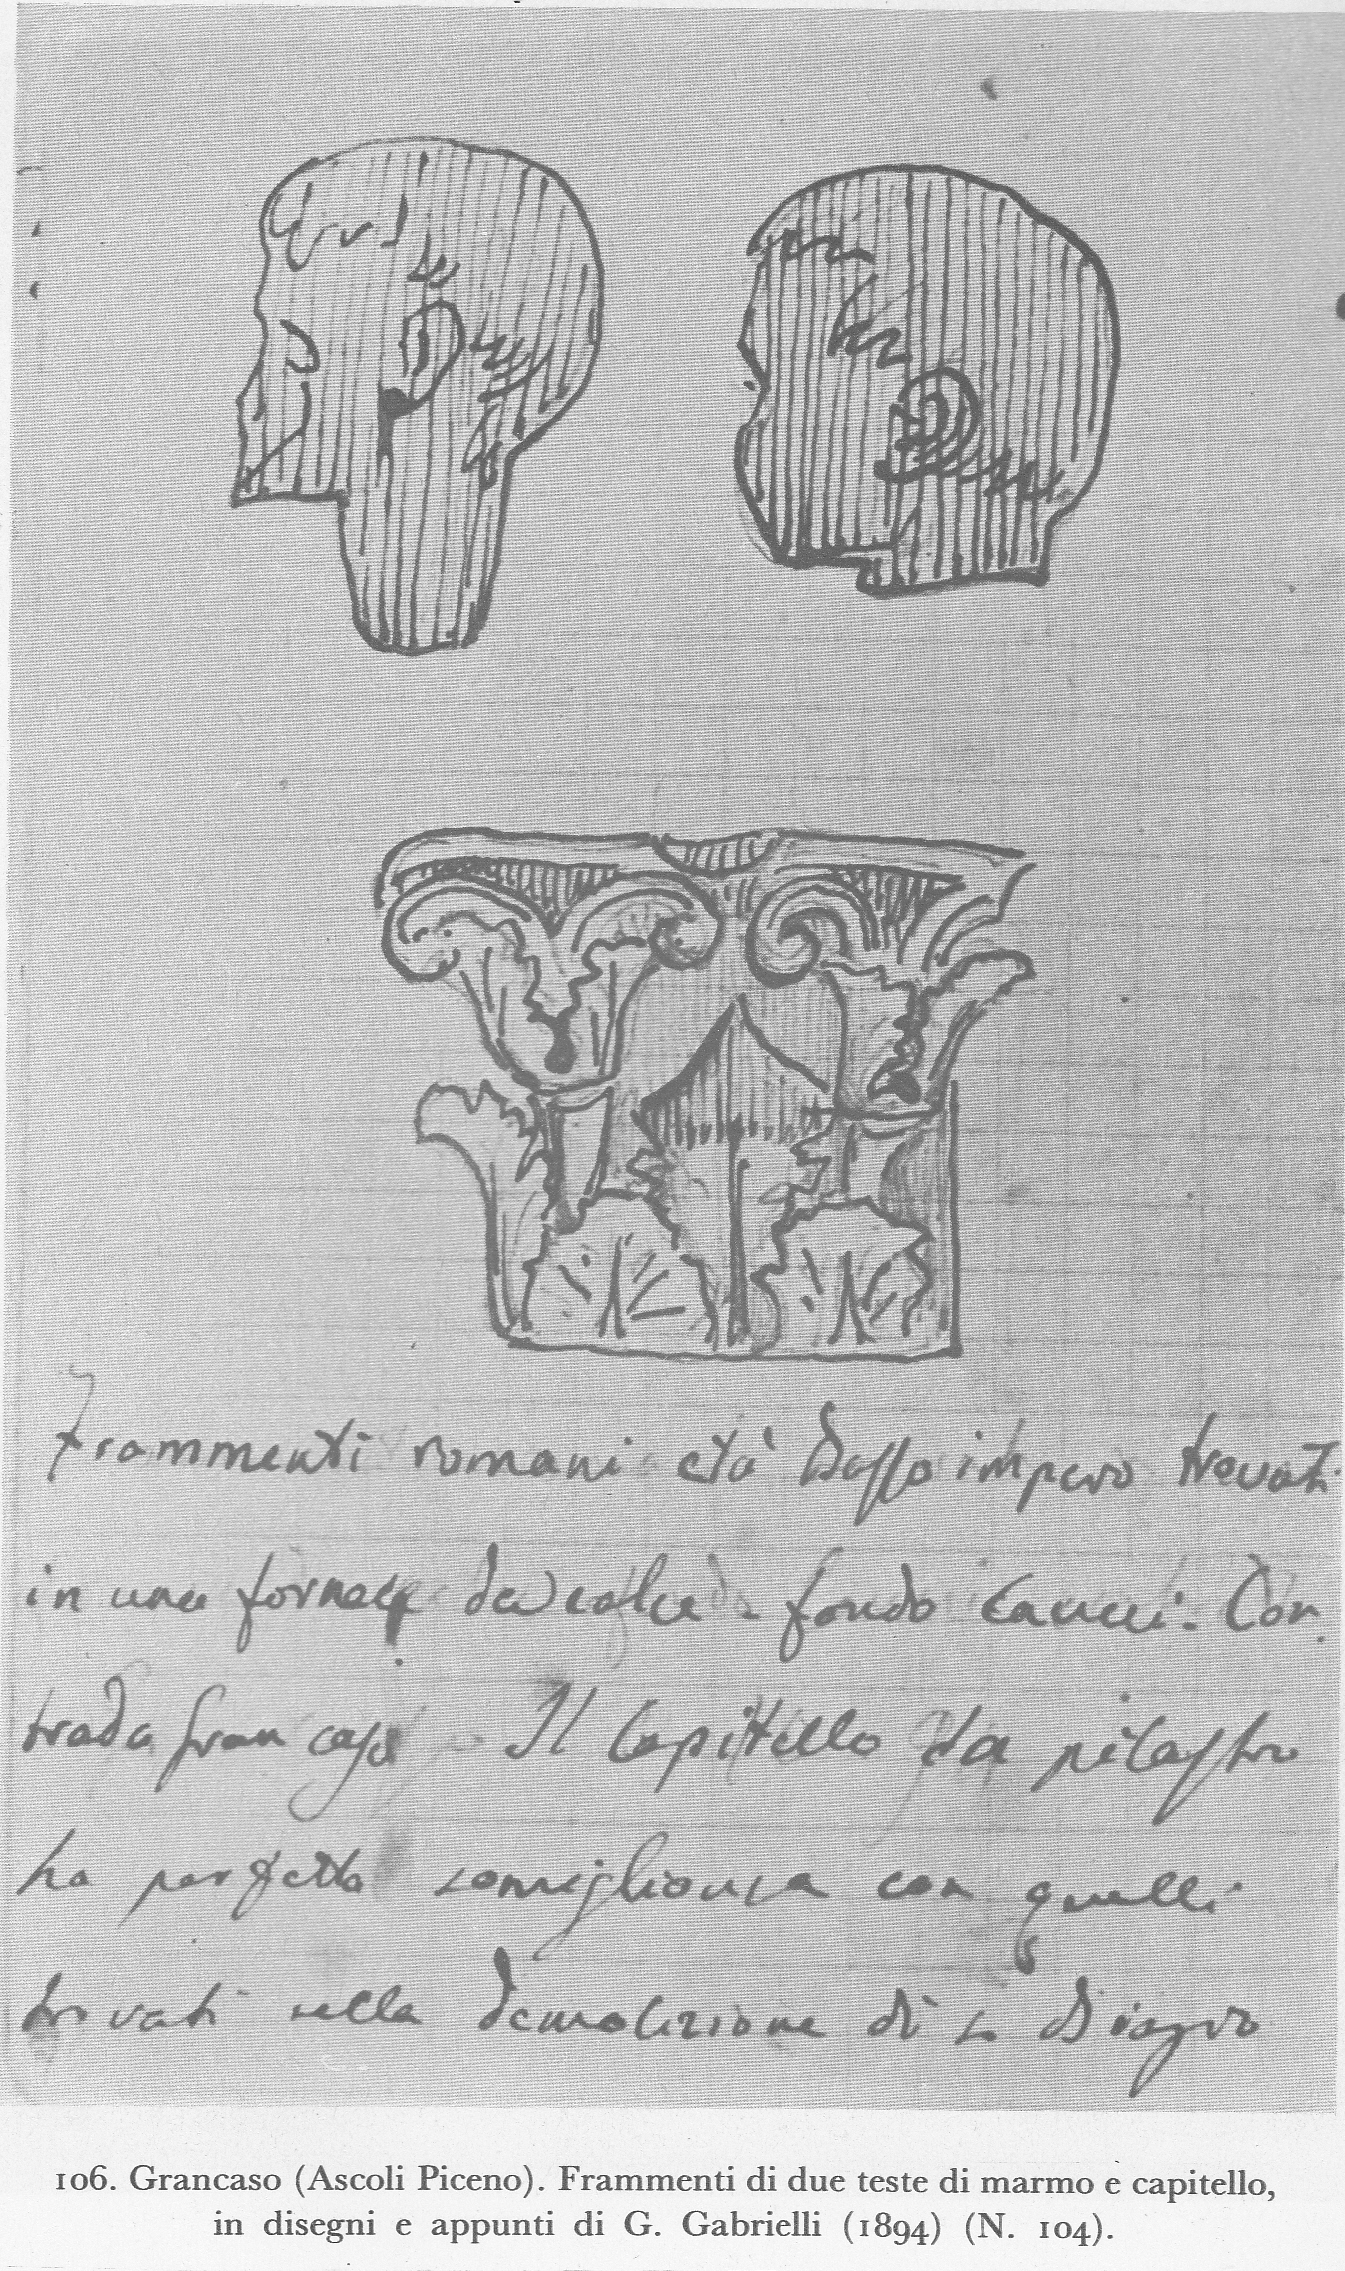 Frammenti romani età basso impero trovati
in una fornace da calce - fondo Cancci - Con
trada Grancaso Il Capitello da pilastro
ha perfetta somiglianza con quelli
trovati nella demolizione di S. Biagio
106. Grancaso (Ascoli Piceno). Frammenti di due teste di marmo e capitello,
in disegni e appunti di G. Gabrielli (1894) (N. 104).